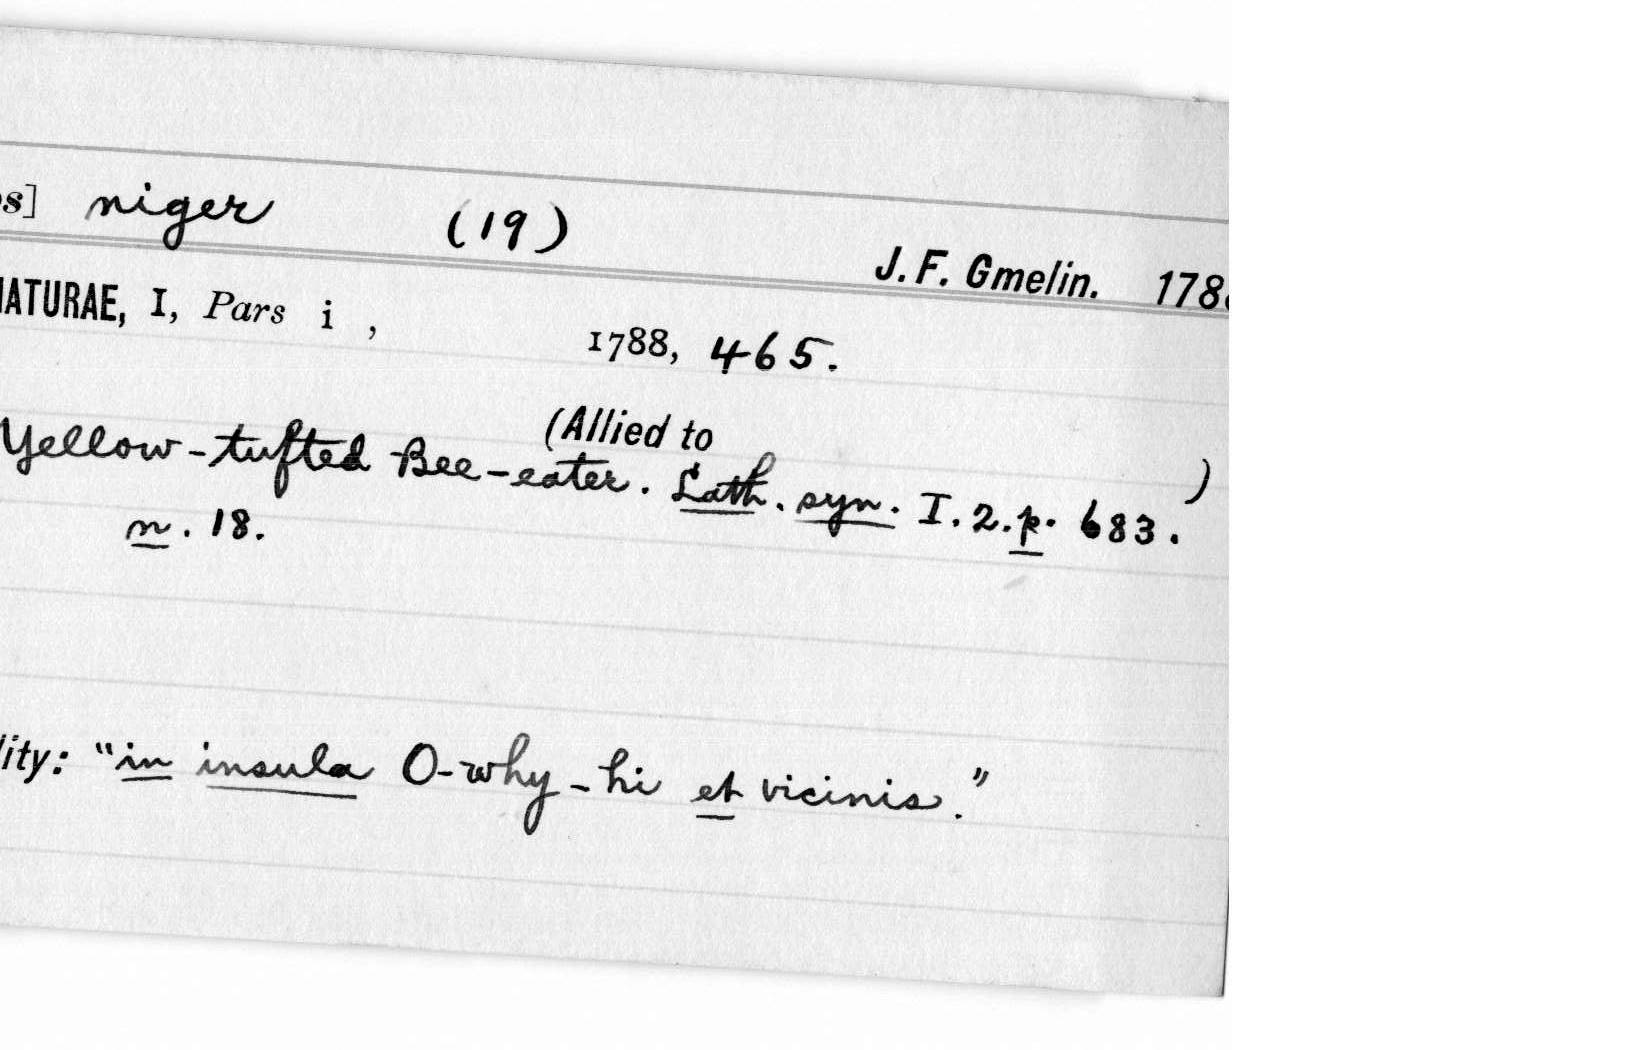 s] niger (19)
J. F. Gmelin. 178
NATURAE, I, Pars i , 1788, 465.
(Allied to )
Yellow-tufted Bee-eater. Lath. syn. I. 2. p. 683.
n. 18.
lity: "in insula O-why-hi et vicinis."